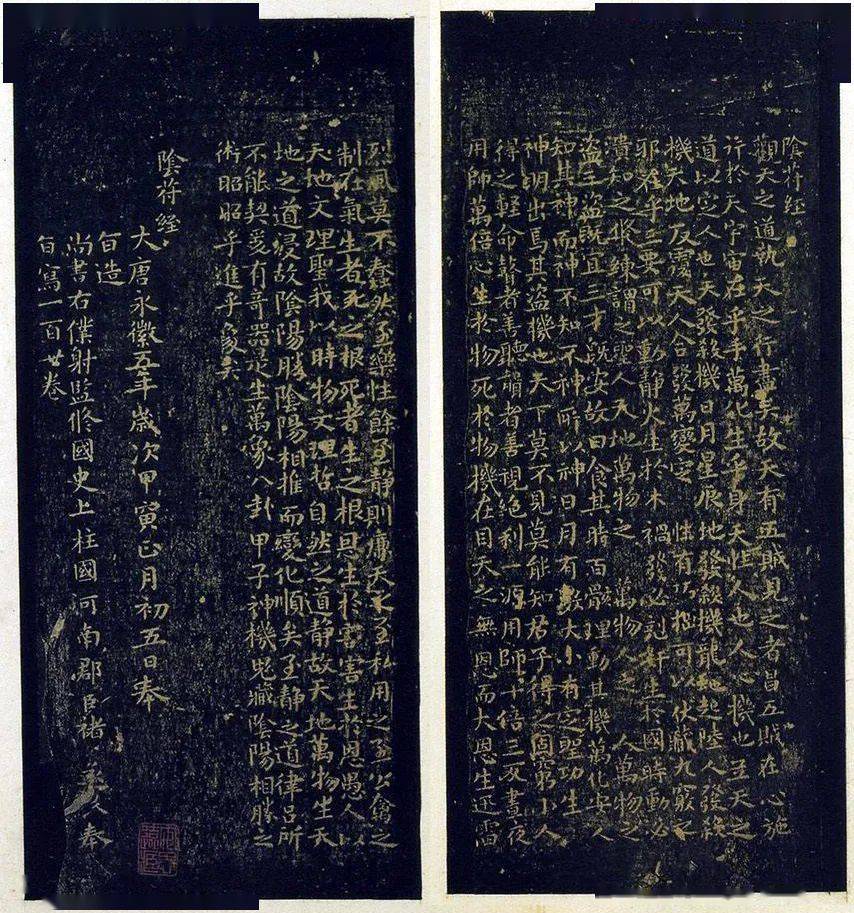 陰符經
觀天之道執天之行盡矣故天有五賊見之者昌五賊在心施
行於天宇宙在乎手萬化生乎身天性人也人心機也立天之
道以定人也天發殺機日月星辰地發殺機龍蛇起陸人發殺
機天地反覆天人合發萬變定 性有巧拙可以伏藏九竅之
邪在乎三要可以動靜火生於木 禍發必剋奸生於國時動必
潰知之修練謂之聖人天地萬物之 萬物人之 人萬物之
盜三盜既宜三才既安故曰食其時百骸理動其機萬化安人
知其神而神不知不神所以神日月有數大小有定聖功生
神明出焉其盜機也天下莫不見莫能知君子得之固窮小人
得之輕命瞽者善聽聾者善視絕利一源用師十倍三反晝夜
用師萬倍心生於物死於物機在目天之無恩而大恩生迅雷
烈風莫不蠢然至樂性餘至靜則廉天之至私用之至公禽之
制在氣生者死之根死者生之根恩生於害害生於恩愚人以
天地文理聖我以時物文理哲自然之道靜故天地萬物生天
地之道浸故陰陽勝陰陽相推而變化順矣至靜之道律呂所
不能契爰有奇器是生萬像八卦甲子神機鬼藏陰陽相勝之
術昭昭乎進乎象矣
陰符經
大唐永徽五年歲次甲寅正月初五日奉
旨造
尚書右僕射監修國史上柱國河南郡臣褚 奉
旨寫一百廿卷